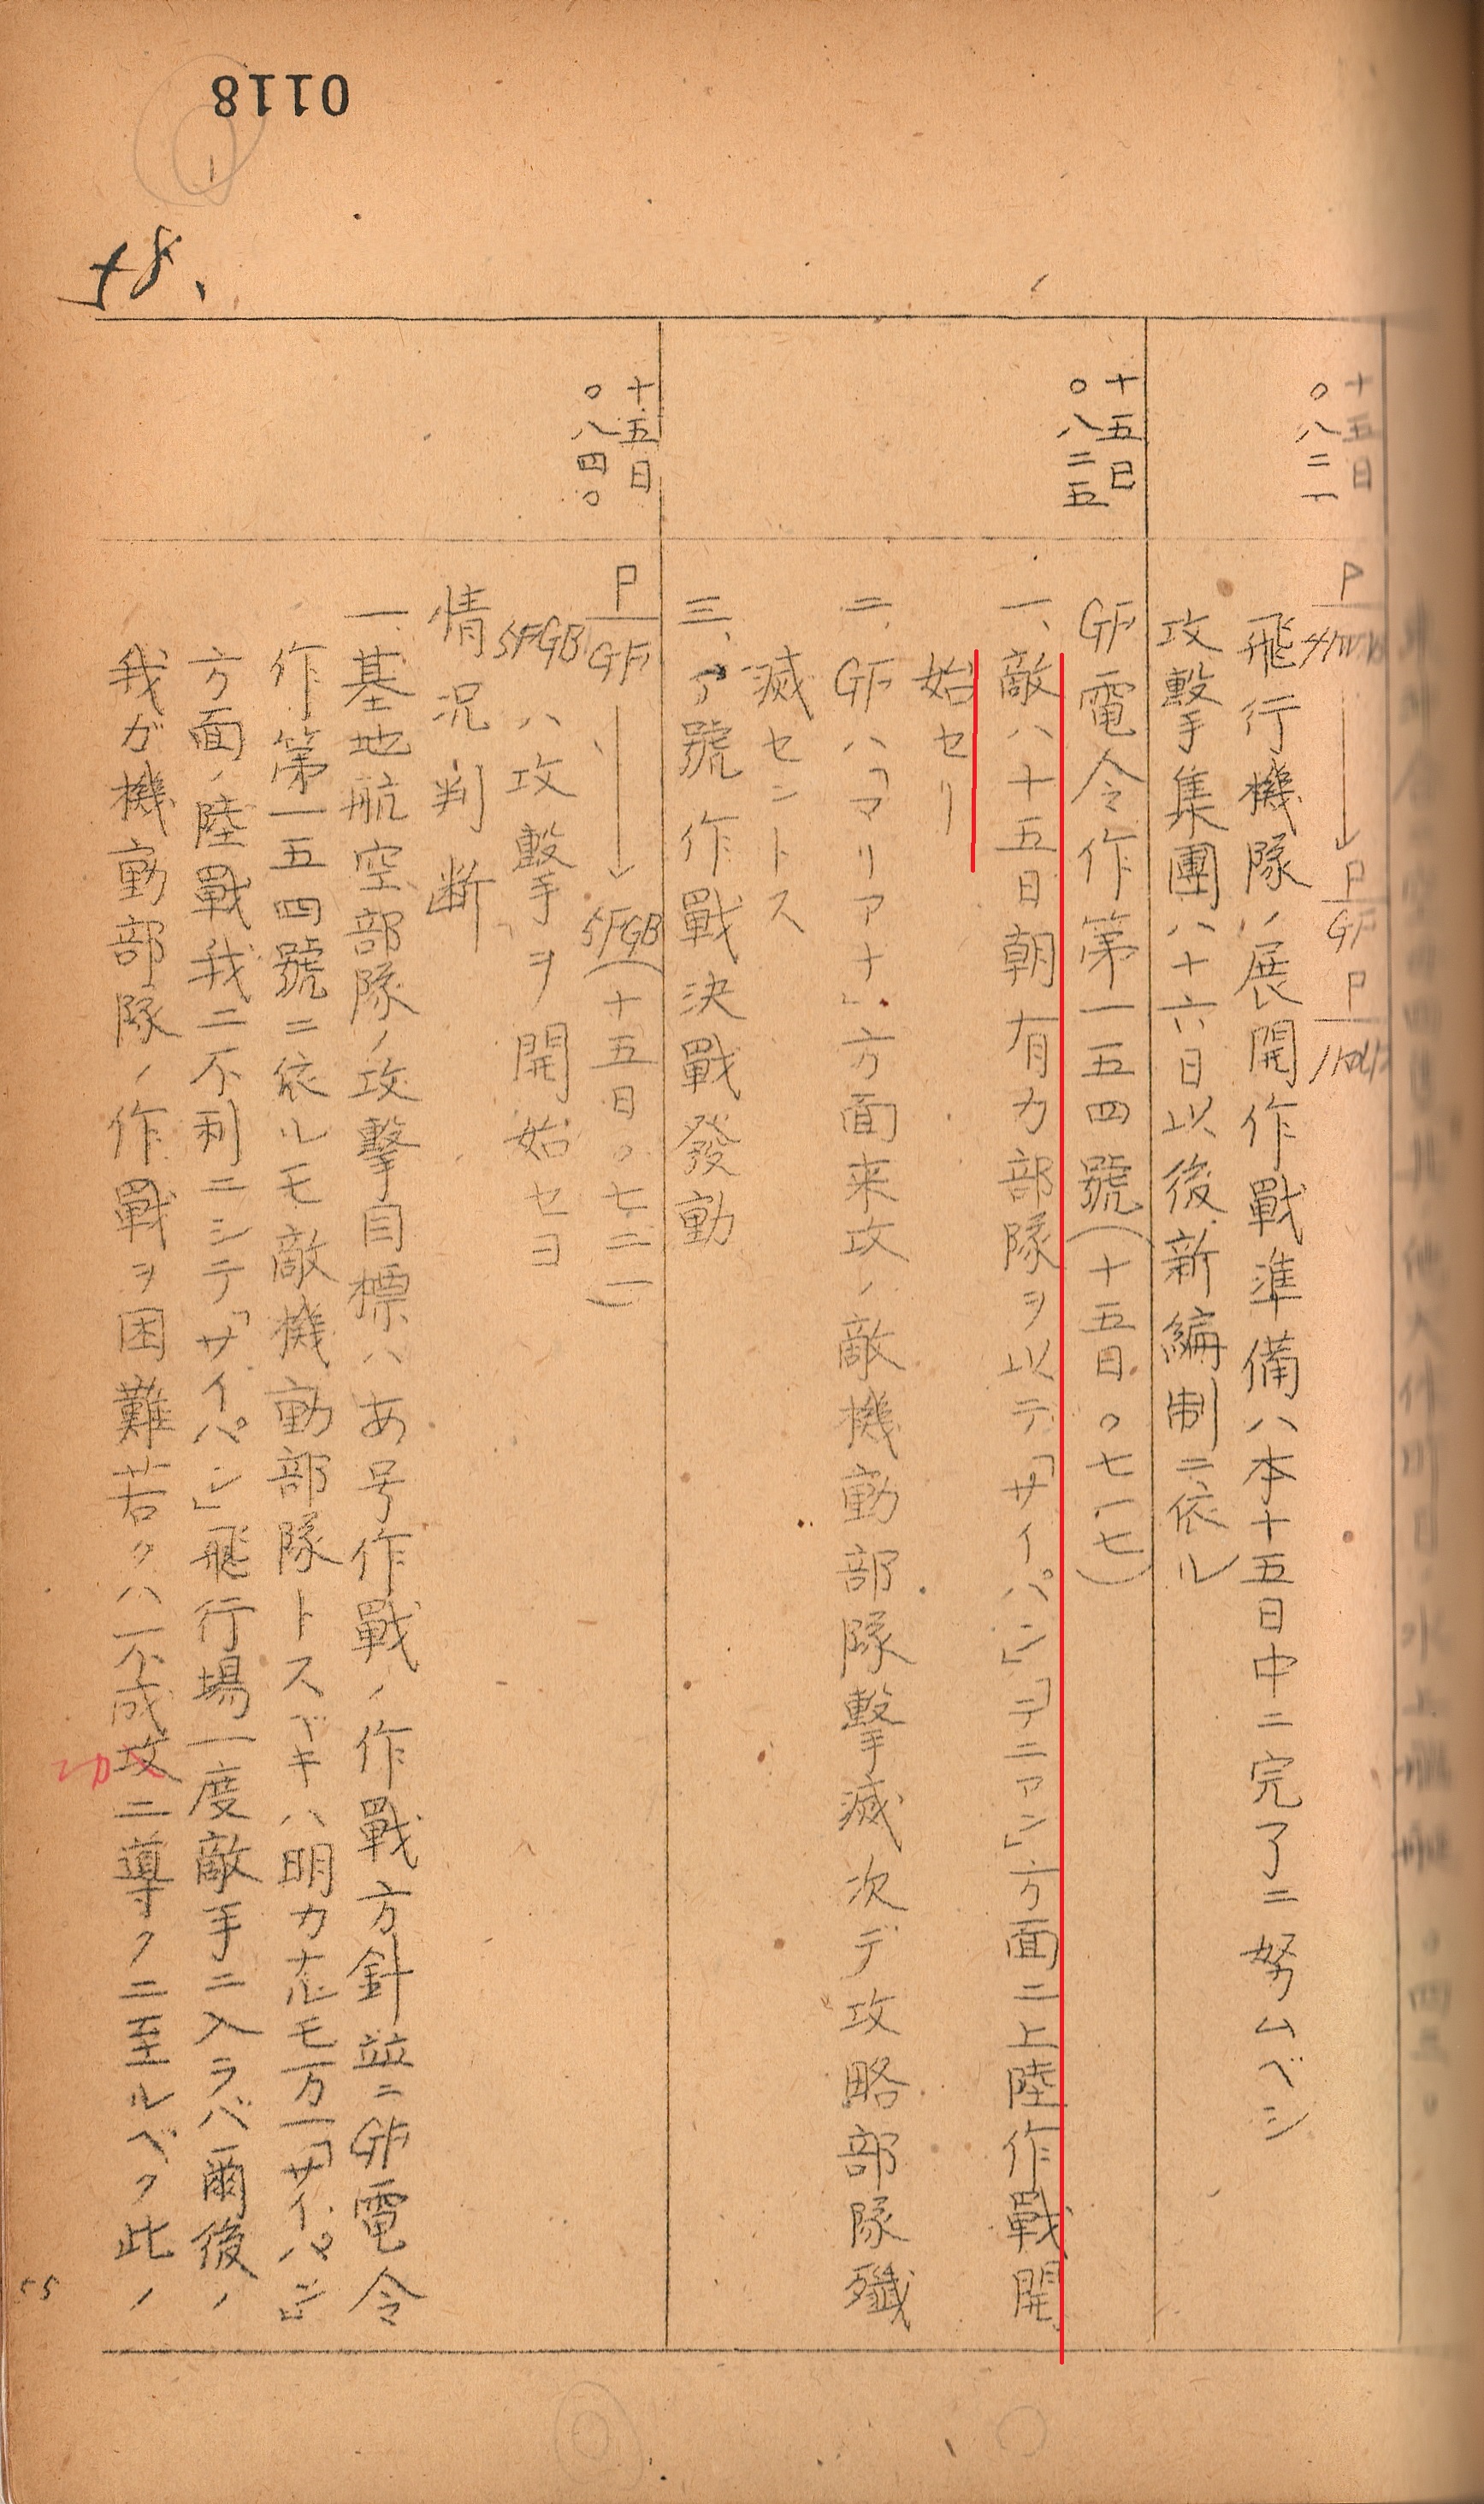 0118
48、
十五日
〇八二一
P
P
GF
P
飛行機隊ノ展開作戰準備ハ本十五日中ニ完了ニ努ムベシ
攻擊集團ハ十六日以後新編制ニ依ル
十五日
〇八二五
GF電令作第一五四號(十五日〇七一七)
一、敵ハ十五日朝有力部隊ヲ以テ「サイパン」「テニアン」方面ニ上陸作戰開
始セリ
二、GFハ「マリアナ」方面来攻ノ敵機動部隊擊滅次デ攻略部隊殲
滅セントス
三、ア號作戰決戰發動
十五日
〇八四〇
P
GF
5FGB(十五日〇七二一)
5FGBハ攻擊ヲ開始セヨ
情況判断
一、基地航空部隊ノ攻擊目標ハあ号作戰ノ作戰方針並ニGF電令
作第一五四號ニ依ルモ敵機動部隊トスベキハ明カナルモ万一「サイパン」
方面ノ陸戰我ニ不利ニシテ「サイパン」飛行場一度敵手ニ入ラバ爾後ノ
我ガ機動部隊ノ作戰ヲ困難若クハ不成攻ニ導クニ至ルベク此ノ
功
55